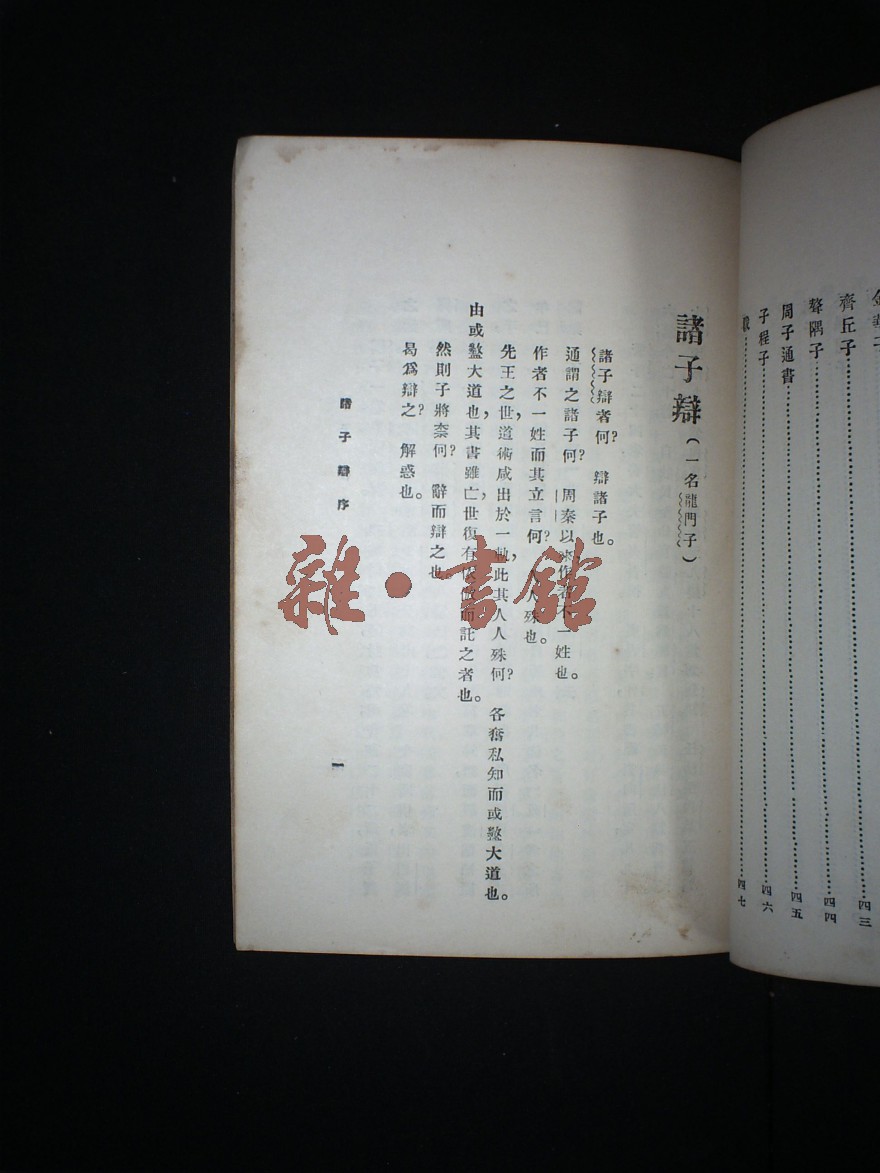 齊丘子……四三
聱隅子……四四
周子通書……四五
子程子……四六
跋……四七
諸子辯（一名龍門子）
諸子辯者何？　辯諸子也。
通謂之諸子何？　周秦以來作者不一姓也。
作者不一姓而其立言何？　人人殊也。
先王之世，道術咸出於一軌，此其人人殊何？　各奮私知而或盭大道也。
由或盭大道也，其書雖亡，世復有依倣而託之者也。
然則子將奈何？　辭而辯之也。
曷爲辯之？　解惑也。
諸子辯序
一
雜·書館